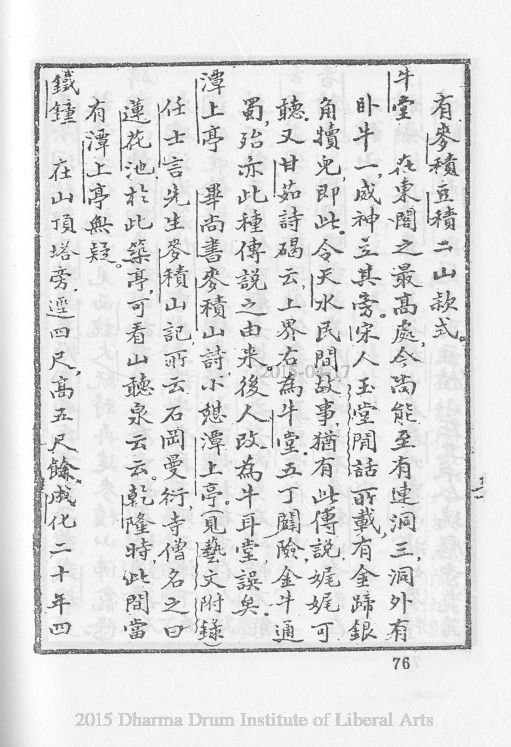 有麥積豆積二山款式。
牛堂　在東閣之最高處，今尚能至有連洞三，洞外有
卧牛一，成神立其旁。宋人玉堂閒話所載，有金蹄銀
角犢兒，即此。令天水民間故事，猶有此傳說，娓娓可
聽又甘茹詩碣云，上界右為牛堂，五丁闢險，金牛通
蜀，殆亦此種傳說之由來，後人改為牛耳堂誤矣。
潭上亭　畢尚書麥積山詩，小憇潭上亭。（見藝文附錄）
任士言先生麥積山記所云石岡曼衍，寺僧名之曰
蓮花池，於此築亭，可看山聽泉云云。乾隆時，此間當
有潭上亭無疑。
鐵鐘　在山頂塔旁，逕四尺，高五尺餘，成化二十年四
76
2015 Dharma Drum Institute of Liberal Arts